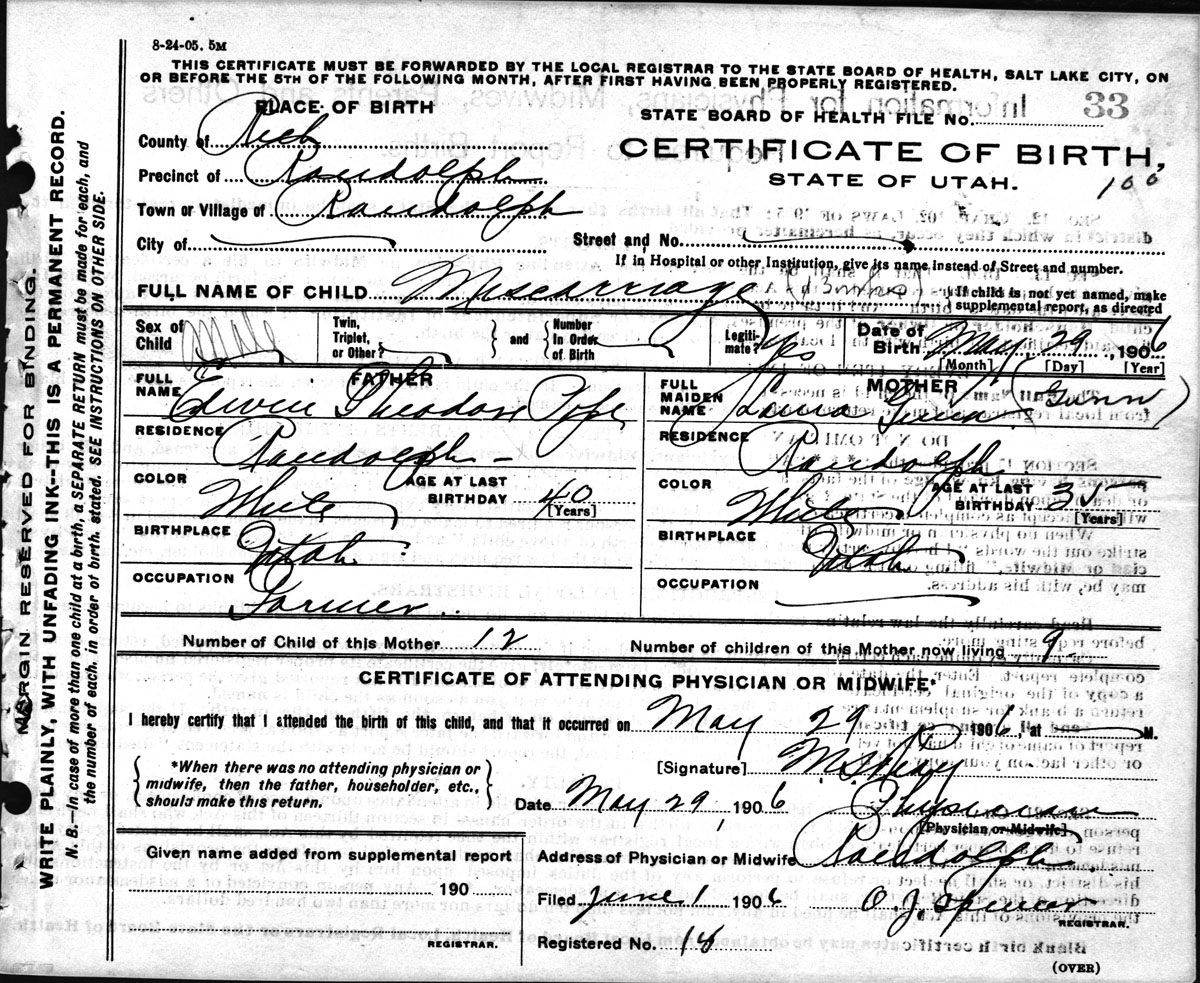 8-24-05. 5M
THIS CERTIFICATE MUST BE FORWARDED BY THE LOCAL REGISTRAR TO THE STATE BOARD OF HEALTH, SALT LAKE CITY, ON
OR BEFORE THE 5TH OF THE FOLLOWING MONTH, AFTER FIRST HAVING BEEN PROPERLY REGISTERED.
PLACE OF BIRTH
STATE BOARD OF HEALTH FILE NO. 33
County of Rich
CERTIFICATE OF BIRTH,
Precinct of Randolph
STATE OF UTAH. 100
Town or Village of Randolph
City of Street and No.
If in Hospital or other Institution, give its name instead of Street and number.
FULL NAME OF CHILD Miscarriage
If child is not yet named, make supplemental report, as directed
Sex of Child Male
Twin, Triplet, or Other? { } and { Number In Order of Birth
Legitimate? Yes
Date of Birth May 29, 1906
[Month] [Day] [Year]
FATHER
FULL NAME Edwin Theodore Pope
MOTHER
FULL MAIDEN NAME (Gunn)
RESIDENCE Randolph
RESIDENCE Randolph
COLOR White AGE AT LAST BIRTHDAY 40 [Years]
COLOR White AGE AT LAST BIRTHDAY [Years]
BIRTHPLACE Utah
BIRTHPLACE Utah
OCCUPATION Farmer
OCCUPATION
Number of Child of this Mother 12 Number of children of this Mother now living 9
CERTIFICATE OF ATTENDING PHYSICIAN OR MIDWIFE*
I hereby certify that I attended the birth of this child, and that it occurred on May 29 1906, at M.
{ *When there was no attending physician or midwife, then the father, householder, etc., should make this return. }
[Signature]
Date May 29, 1906 Physician
[Physician or Midwife]
Given name added from supplemental report
Address of Physician or Midwife Randolph
190
Filed June 1 1906 O. J. Spencer
REGISTRAR.
REGISTRAR.
Registered No. 18
(OVER)
MARGIN RESERVED FOR BINDING.
WRITE PLAINLY, WITH UNFADING INK—THIS IS A PERMANENT RECORD.
N. B.—In case of more than one child at a birth, a SEPARATE RETURN must be made for each, and
the number of each, in order of birth, stated. SEE INSTRUCTIONS ON OTHER SIDE.